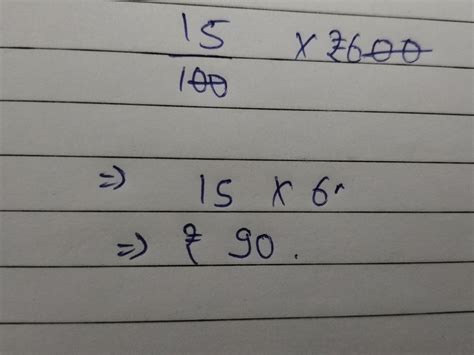 15/100 × ₹600
⇒ 15 × 6
⇒ ₹ 90.